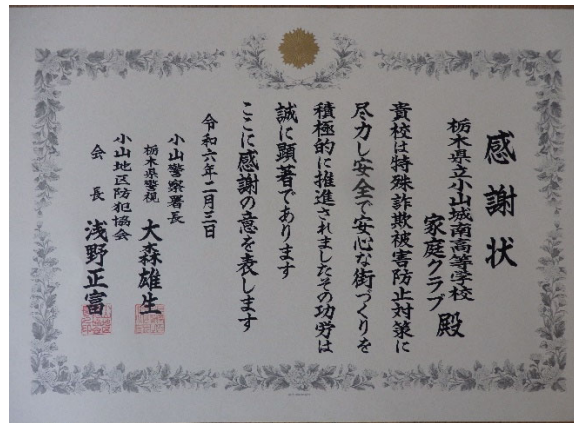 感謝状
栃木県立小山城南高等学校
家庭クラブ 殿
貴校は特殊詐欺被害防止対策に
尽力し安全で安心な街づくりを
積極的に推進されましたその功労は
誠に顕著であります
ここに感謝の意を表します
令和六年二月三日
小山警察署長
栃木県警視 大森雄生
小山地区防犯協会
会長 浅野正富